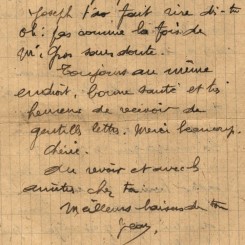 Joseph t'as fait rire dis-tu
oh! pas comme la fois de
Mr Gros sans doute.
Toujours au même
endroit, bonne santé et très
heureux de recevoir de
gentilles lettres. Merci beaucoup
chérie.
Au revoir et avec
amitiés chez
Meilleurs baisers de ton
Jean,